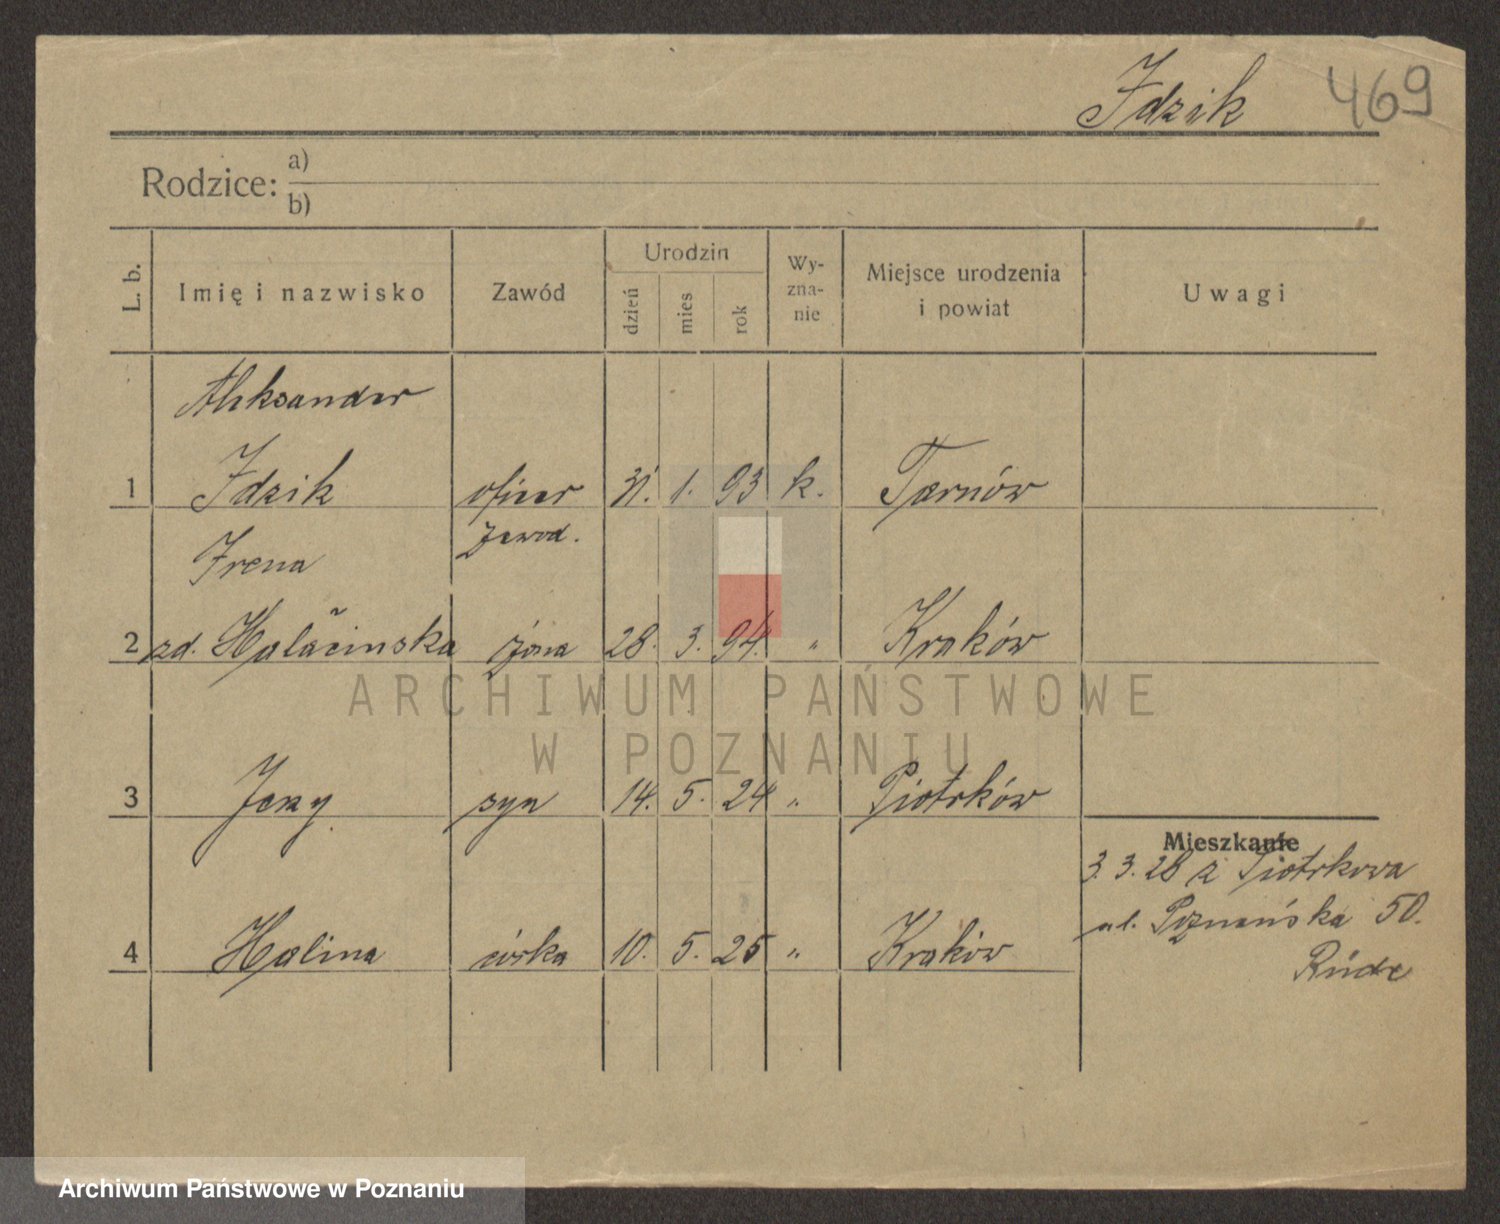 Idzik 469
Rodzice: a)
b)
L. b. Imię i nazwisko Zawód Urodzin dzień mies rok Wy-zna-nie Miejsce urodzenia i powiat Uwagi
Aleksander
1 Idzik oficer 31. 1. 93 k. Tarnów
Irena zawod.
2 zd. Halačinska żona 28. 3. 94. " Kraków
ARCHIWUM PAŃSTWOWE
W POZNANIU
3 Jerzy syn 14. 5. 24 " Piotrków
Mieszkanie
3. 3. 28 z Piotrkowa
ul. Poznańska 50.
4 Halina córka 10. 5. 25 " Kraków
Archiwum Państwowe w Poznaniu